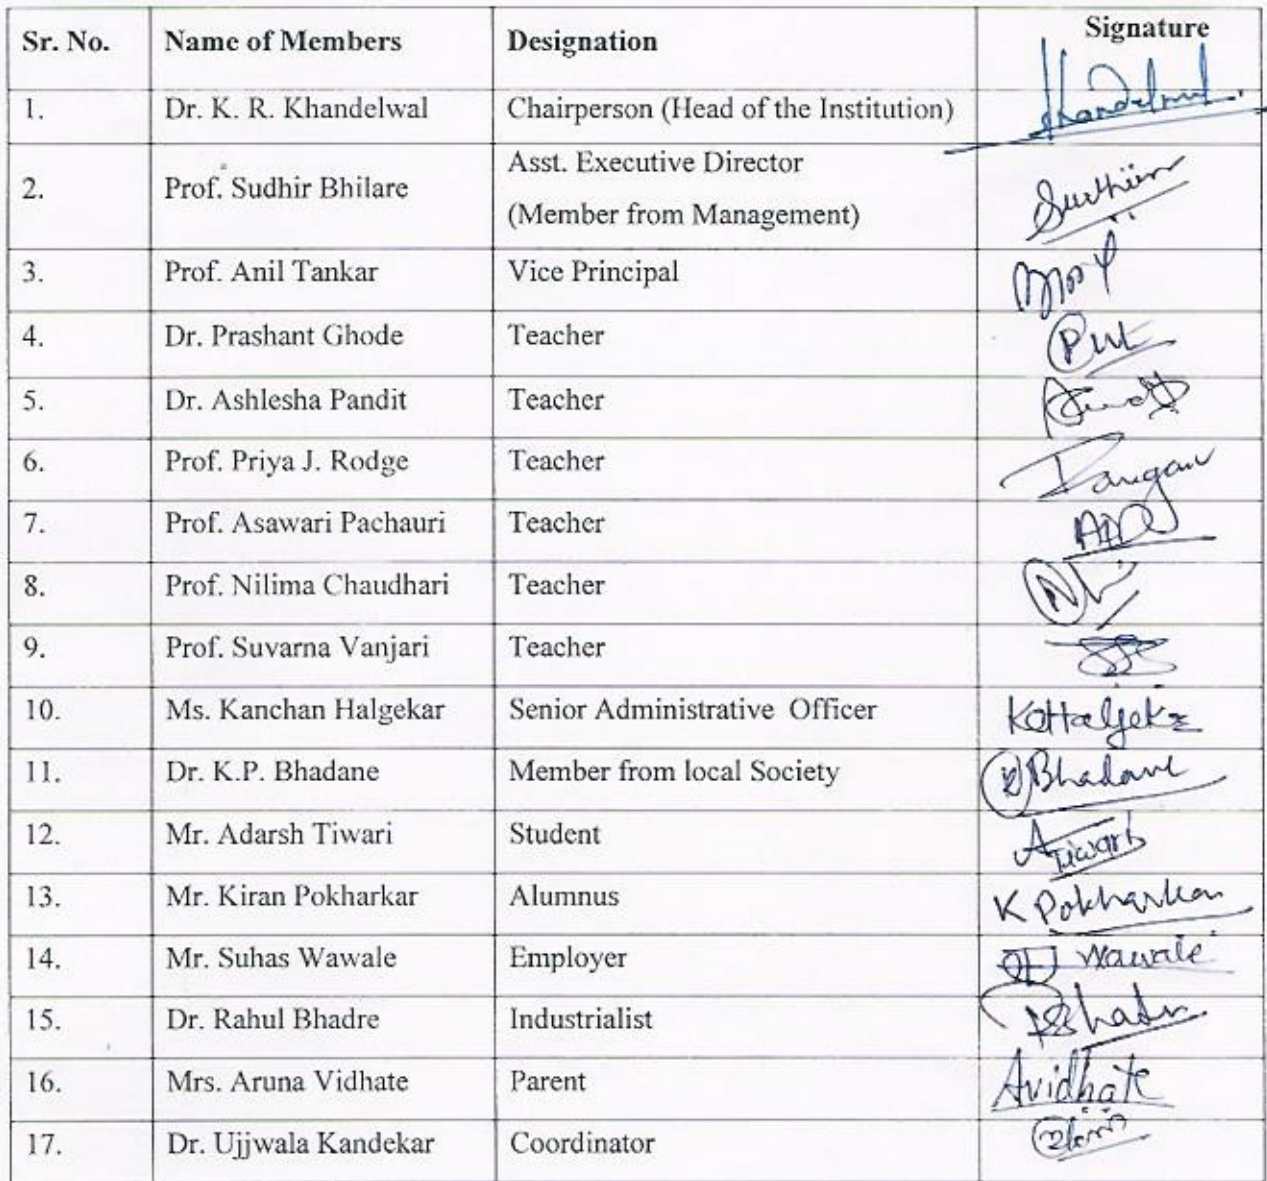 Sr. No. Name of Members Designation Signature
1. Dr. K. R. Khandelwal Chairperson (Head of the Institution) Khandelwal
2. Prof. Sudhir Bhilare Asst. Executive Director
(Member from Management) Sudhir
3. Prof. Anil Tankar Vice Principal
4. Dr. Prashant Ghode Teacher
5. Dr. Ashlesha Pandit Teacher
6. Prof. Priya J. Rodge Teacher
7. Prof. Asawari Pachauri Teacher
8. Prof. Nilima Chaudhari Teacher
9. Prof. Suvarna Vanjari Teacher
10. Ms. Kanchan Halgekar Senior Administrative Officer
11. Dr. K.P. Bhadane Member from local Society Bhadane
12. Mr. Adarsh Tiwari Student ATiwari
13. Mr. Kiran Pokharkar Alumnus K Pokharkar
14. Mr. Suhas Wawale Employer Wawale
15. Dr. Rahul Bhadre Industrialist
16. Mrs. Aruna Vidhate Parent Avidhate
17. Dr. Ujjwala Kandekar Coordinator